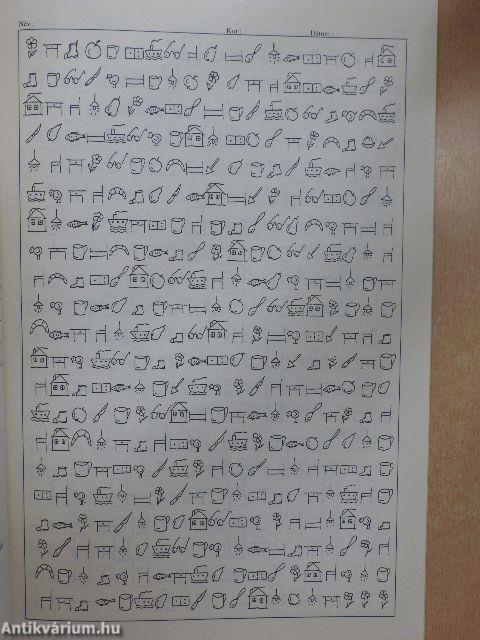 Név :
Kor :
Dátum :
Antikvárium.hu